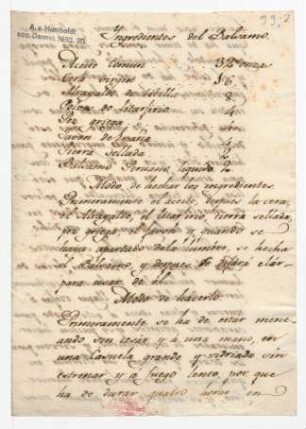 A. v. Humboldt
99-2
Ingredientes del Balsamo.
Aceite comun 32 onzas
Cera virgen 16
8
4
Pez griega
Javon de 
Tierra Sellada 
Balsamo Peruano liquido 2
Modo de hechar los ingredientes.
Primeramente el aceite, despues la cera,
el Albayalde, el litarjirio, tierra sellada,
pez griega, el javon y quando se
haya apartado dela lumbre, se hecha
el Balsamo, y despues se 
para usar de el.
Modo de hacerlo.
Primeramente se ha de estar mene-
ando sin cesár, y a una mano, en
una Casuela grande y vidriada sin
estrenar y a fuego lento, por que
ha de durar quatro horas en